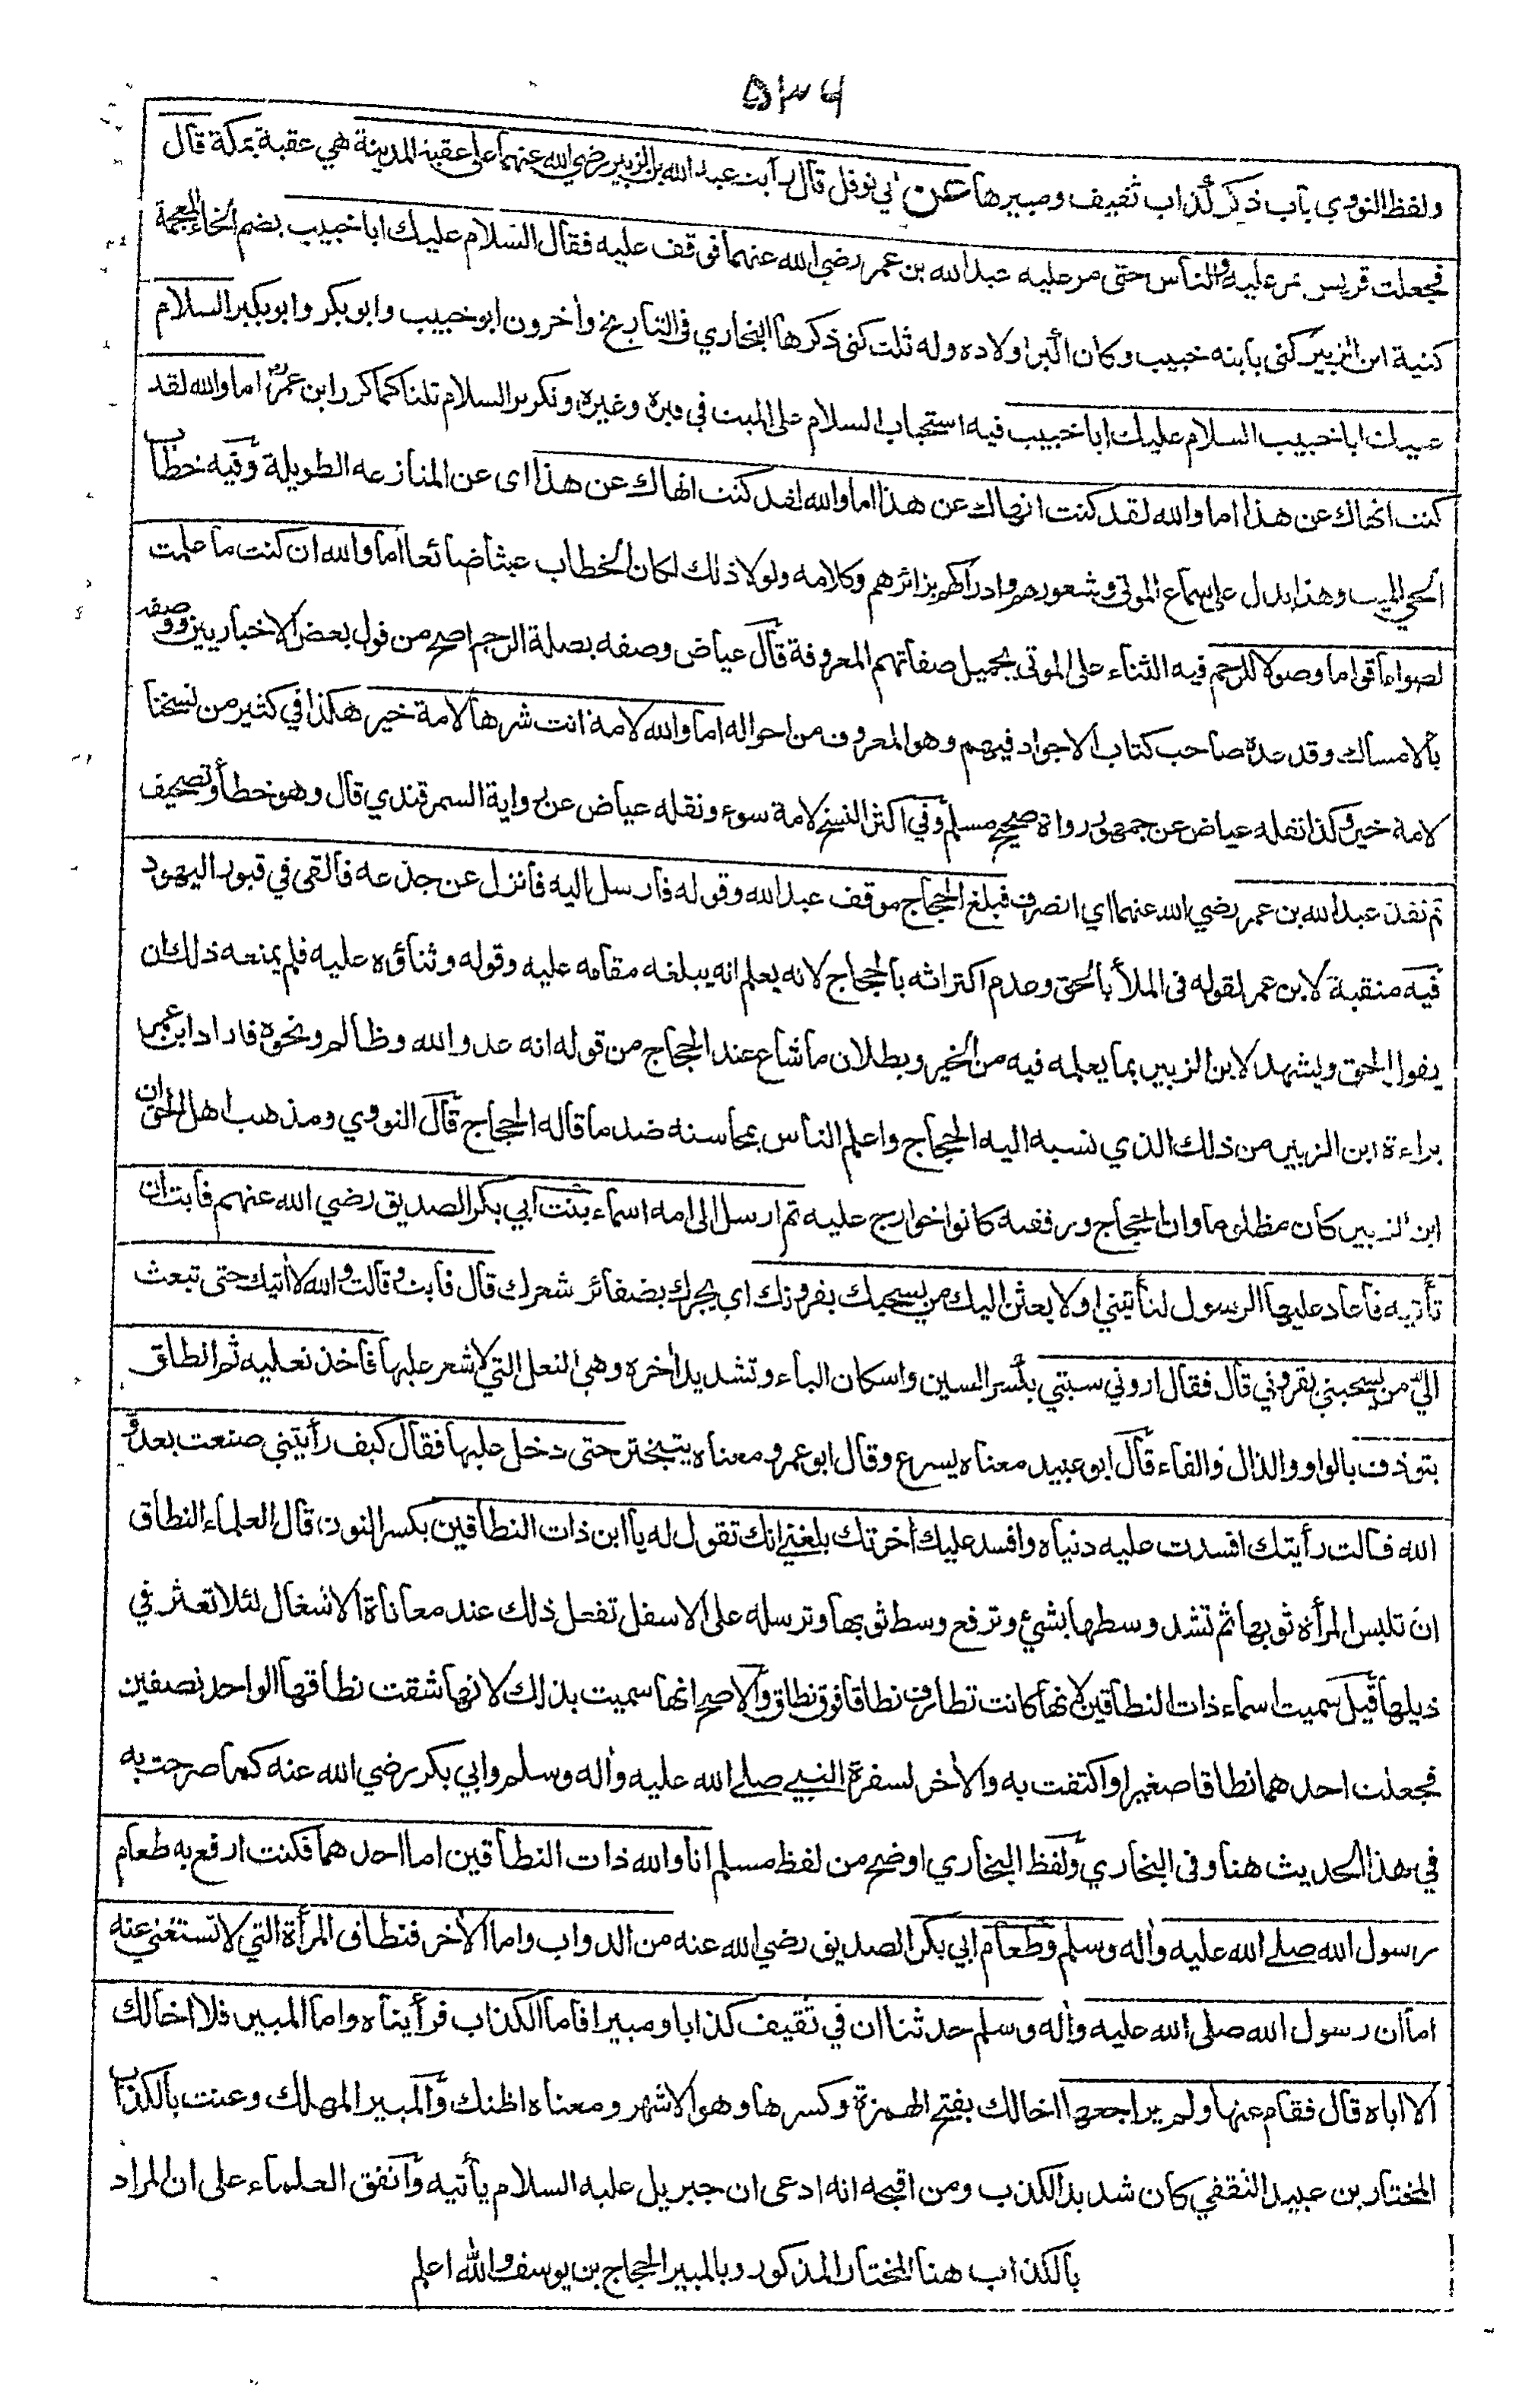 ٥٣٦
ولفظ النووي باب ذكر كذاب ثقيف ومبيرها عن ابي نوفل قال رأيت عبد الله بن الزبير رضي الله عنهما على عقبة المدينة هي عقبة بمكة قال
فجعلت قريش تمر عليه والناس حتى مر عليه عبد الله بن عمر رضي الله عنهما فوقف عليه فقال السلام عليك ابا خبيب بضم الخاء المعجمة
كنية ابن الزبير كنى بابنه خبيب وكان اكبر اولاده وله ثلث كنى ذكرها البخاري في التاريخ واخرون ابو خبيب وابو بكر وابو بكير السلام
عليك ابا خبيب السلام عليك ابا خبيب فيه استحباب السلام على الميت في قبره وغيره وتكرير السلام ثلثا كما كرر ابن عمر رض اما والله لقد
كنت انهاك عن هذا اما والله لقد كنت انهاك عن هذا اما والله لقد كنت انهاك عن هذا اى عن المنازعه الطويلة وفيه خطاب
الحي للميت وهذا يدل على سماع الموتى وشعورهم وادراكهم بزائرهم وكلامه ولولا ذلك لكان الخطاب عبثا ضائعا اما والله ان كنت ما علمت
لصواما قواما وصولا للرحم فيه الثناء على الموتى بجميل صفاتهم المعروفة قال عياض وصفه بصلة الرحم اصح من قول بعض الاخباريين ووصفه
بالامساك وقد عده صاحب كتاب الاجواد فيهم وهو المعروف من احواله اما والله لامة انت شرها لامة خير هكذا في كثير من نسخنا
لامة خير وكذا نقله عياض عن جمهور رواة صحيح مسلم وفي اكثر النسخ لامة سوء ونقله عياض عن رواية السمرقندي قال وهو خطأ وتصحيف
ثم نفذ عبد الله بن عمر رضي الله عنهما اي انصرف فبلغ الحجاج موقف عبد الله وقوله فارسل اليه فانزل عن جذعه فالقى في قبور اليهود
فيه منقبة لابن عمر لقوله في الملأ بالحق وعدم اكتراثه بالحجاج لانه يعلم انه يبلغه مقامه عليه وقوله وثناؤه عليه فلم يمنعه ذلك ان
يقول الحق ويشهد لابن الزبير بما يعلمه فيه من الخير وبطلان ما شاع عند الحجاج من قوله انه عدو الله وظالم ونحوه فاراد ابن عمر
براءة ابن الزبير من ذلك الذي نسبه اليه الحجاج واعلم الناس بمحاسنه ضد ما قاله الحجاج قال النووي ومذهب اهل الحق ان
ابن الزبير كان مظلوما وان الحجاج ورفقه كانوا خوارج عليه ثم ارسل الى امه اسماء بنت ابي بكر الصديق رضي الله عنهم فابت ان
تأتيه فاعاد عليها الرسول لتأتيني او لابعثن اليك من يسحبك بقرونك اي يجرك بضفائر شعرك قال فابت وقالت والله لا اتيك حتى تبعث
الي من يسحبني بقروني قال فقال اروني سبتي بكسر السين واسكان الباء وتشديد اخره وهي النعل التي لا شعر عليها فاخذ نعليه ثم انطلق
يتوذف بالواو والذال والفاء قال ابو عبيد معناه يسرع وقال ابو عمرو معناه يتبختر حتى دخل عليها فقال كيف رأيتني صنعت بعدو
الله قالت رأيتك افسدت عليه دنياه وافسد عليك اخرتك بلغني انك تقول له يا ابن ذات النطاقين بكسر النون قال العلماء النطاق
ان تلبس المرأة ثوبها ثم تشد وسطها بشئ وترفع وسط ثوبها وترسله على الاسفل تفعل ذلك عند معاناة الاشغال لئلا تعثر في
ذيلها قيل سميت اسماء ذات النطاقين لانها كانت تطارف نطاقا فوق نطاق والاصح انها سميت بذلك لانها شقت نطاقها الواحد نصفين
فجعلت احدهما نطاقا صغيرا واكتفت به والاخر لسفرة النبي صلى الله عليه واله وسلم وابي بكر رضي الله عنه كما صرحت به
في هذا الحديث هنا وفى البخاري ولفظ البخاري اوضح من لفظ مسلم انا والله ذات النطاقين اما احدهما فكنت ارفع به طعام
رسول الله صلى الله عليه واله وسلم وطعام ابي بكر الصديق رضي الله عنه من الدواب واما الاخر فنطاق المرأة التي لا تستغني عنه
اما ان رسول الله صلى الله عليه واله وسلم حدثنا ان في ثقيف كذابا ومبيرا فاما الكذاب فرأيناه واما المبير فلا اخالك
الا اياه قال فقام عنها ولم يراجعها اخالك بفتح الهمزة وكسرها وهو الاشهر ومعناه اظنك والمبير المهلك وعنت بالكذاب
المختار بن عبيد الثقفي كان شديد الكذب ومن اقبحه انه ادعى ان جبريل عليه السلام يأتيه واتفق العلماء على ان المراد
بالكذاب هنا المختار المذكور وبالمبير الحجاج بن يوسف والله اعلم